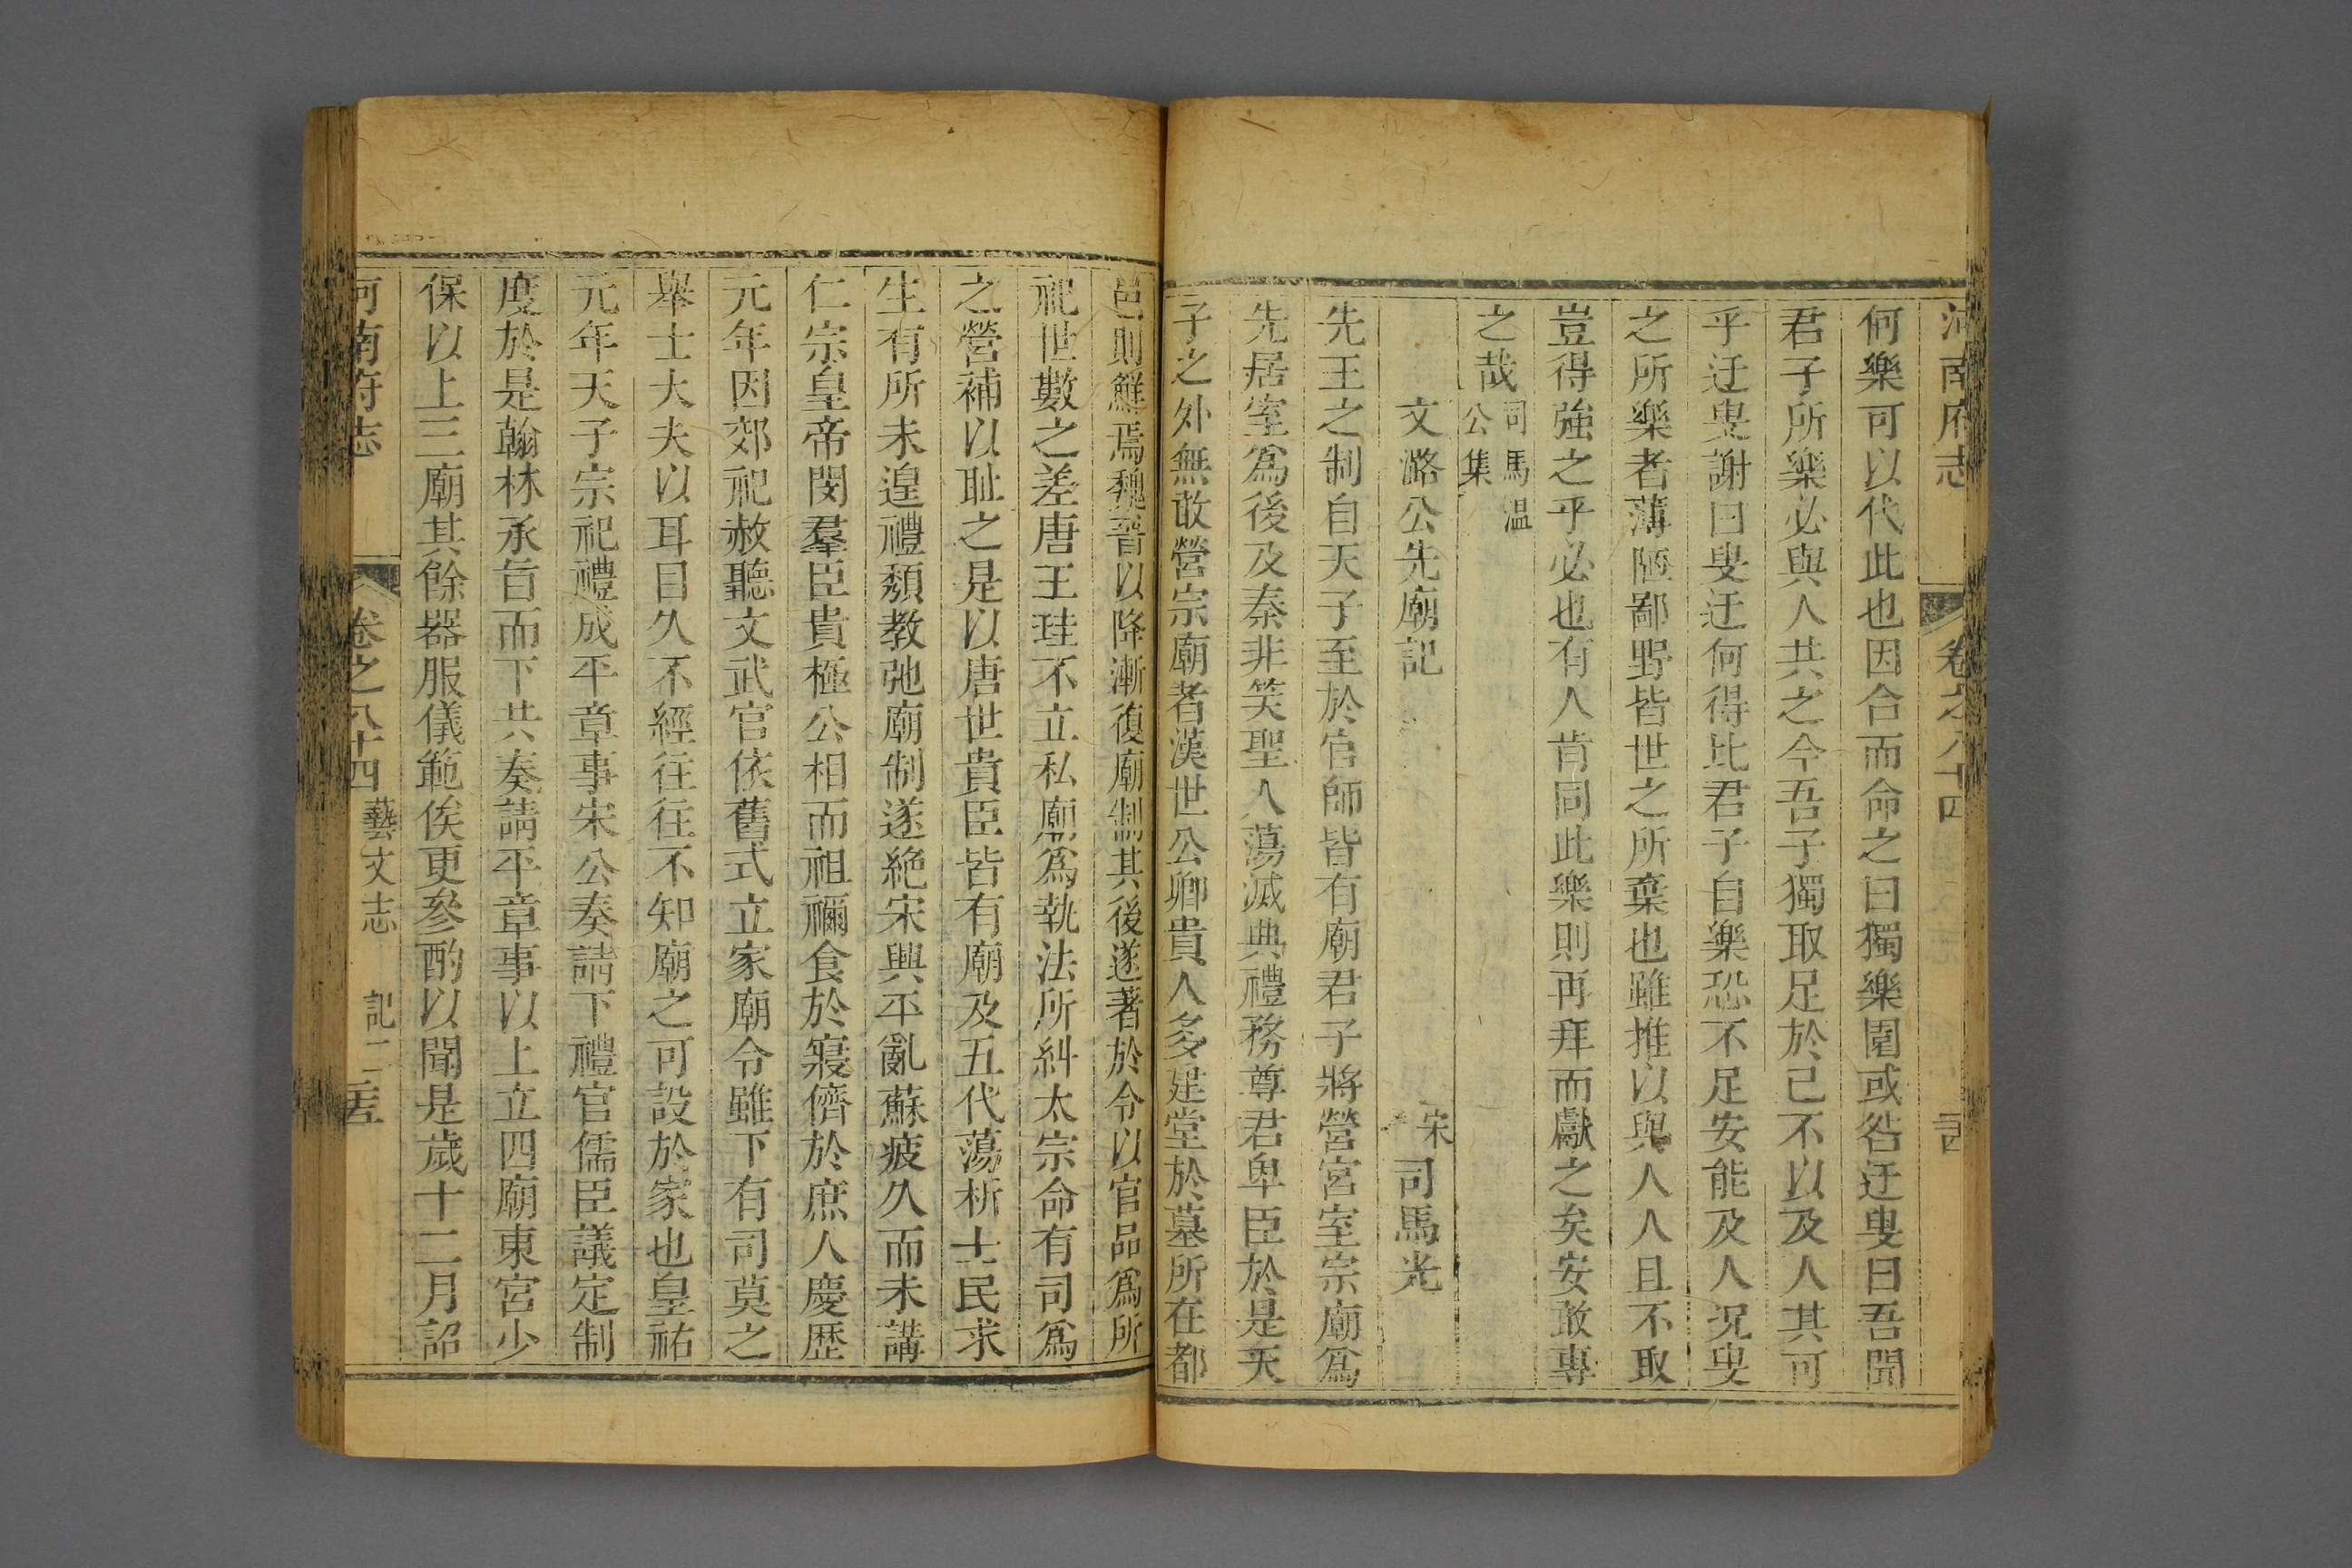 河南府志 卷之八十四
何樂可以代此也因合而命之曰獨樂園或咎迂叟曰吾聞
君子所樂必與人共之今吾子獨取足於己不以及人其可
乎迂叟謝曰叟迂何得比君子自樂恐不足安能及人況叟
之所樂者薄陋鄙野皆世之所棄也雖推以與人人且不取
豈得強之乎必也有人肯同此樂則再拜而獻之矣安敢專
之哉司馬温公集
文潞公先廟記 宋司馬光
先王之制自天子至於官師皆有廟君子將營宮室宗廟爲
先居室爲後及秦非笑聖人蕩滅典禮務尊君卑臣於是天
子之外無敢營宗廟者漢世公卿貴人多建堂於墓所在都
邑則鮮焉魏晉以降漸復廟制其後遂著於令以官品爲所
祀世數之差唐王珪不立私廟爲執法所糾太宗命有司爲
之營補以耻之是以唐世貴臣皆有廟及五代蕩析士民求
生有所未遑禮頽教弛廟制遂絶宋興平亂蘇疲久而未講
仁宗皇帝閔羣臣貴極公相而祖禰食於寢儕於庶人慶歴
元年因郊祀赦聽文武官依舊式立家廟令雖下有司莫之
舉士大夫以耳目久不經往往不知廟之可設於家也皇祐
元年天子宗祀禮成平章事宋公奏請下禮官儒臣議定制
度於是翰林承旨而下共奏請平章事以上立四廟東宮少
保以上三廟其餘器服儀範俟更參酌以聞是歲十二月詔
河南府志 卷之八十四 藝文志 記二